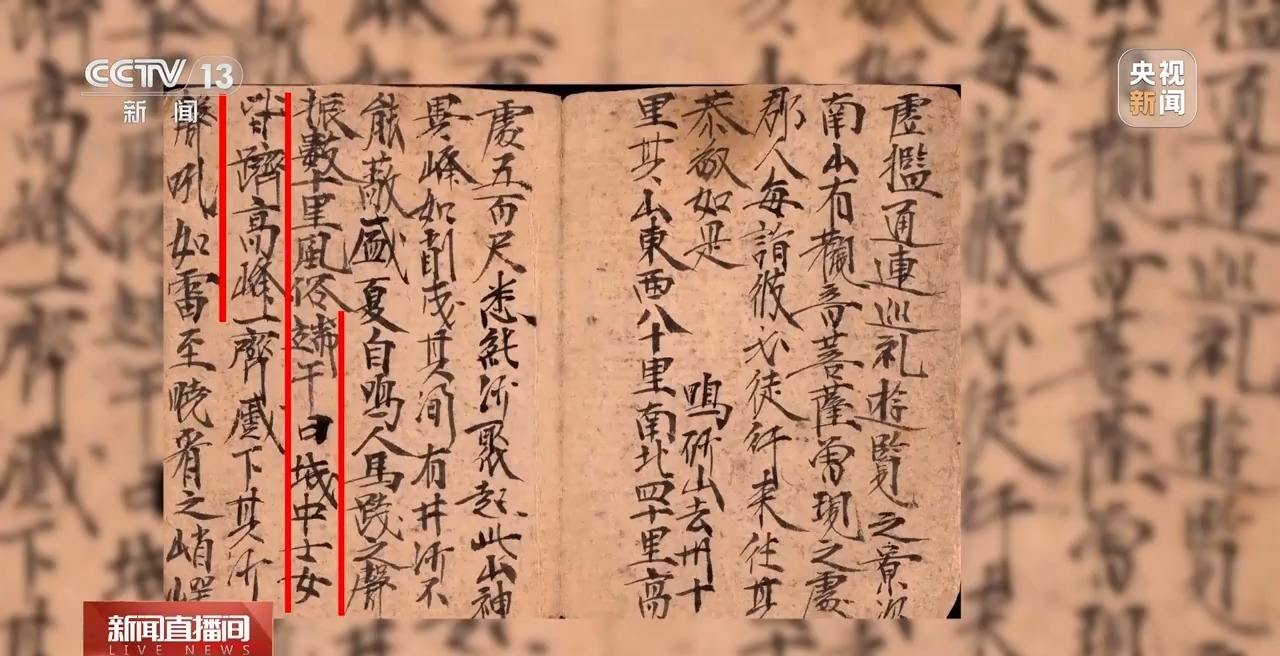 CCTV 13
新闻
央视
新闻
虛檻通連巡礼遊覽之景次
南山有觀音菩薩曾現之處
郡人每詣彼必徒行来往其
恭敬如是 鳴沙山去州十
里其山東西八十里南北四十里高
處五百尺悉純沙聚起此山神
異峰如削成其間有井沙不
能蔽盛夏自鳴人馬踐之聲
振數十里風俗端午日城中士女
皆躋高峰一齊蹙下其沙
聲吼如雷至曉看之峭崿
新闻直播间
LIVE NEWS